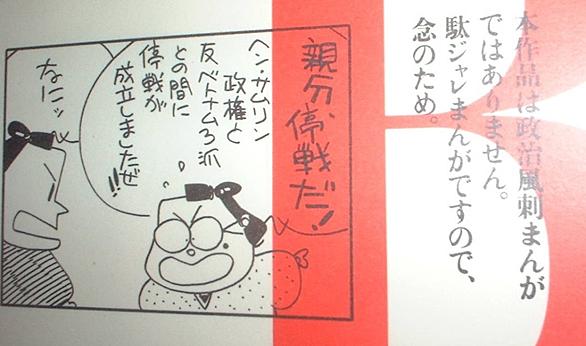 本作品は政治風刺まんが
ではありません。
駄ジャレまんがですので、
念のため。
親分、停戦だ！
ヘン・サムリン
政権と
反ベトナム3派
との間に
停戦が
成立しましたぜ!!
なにッ